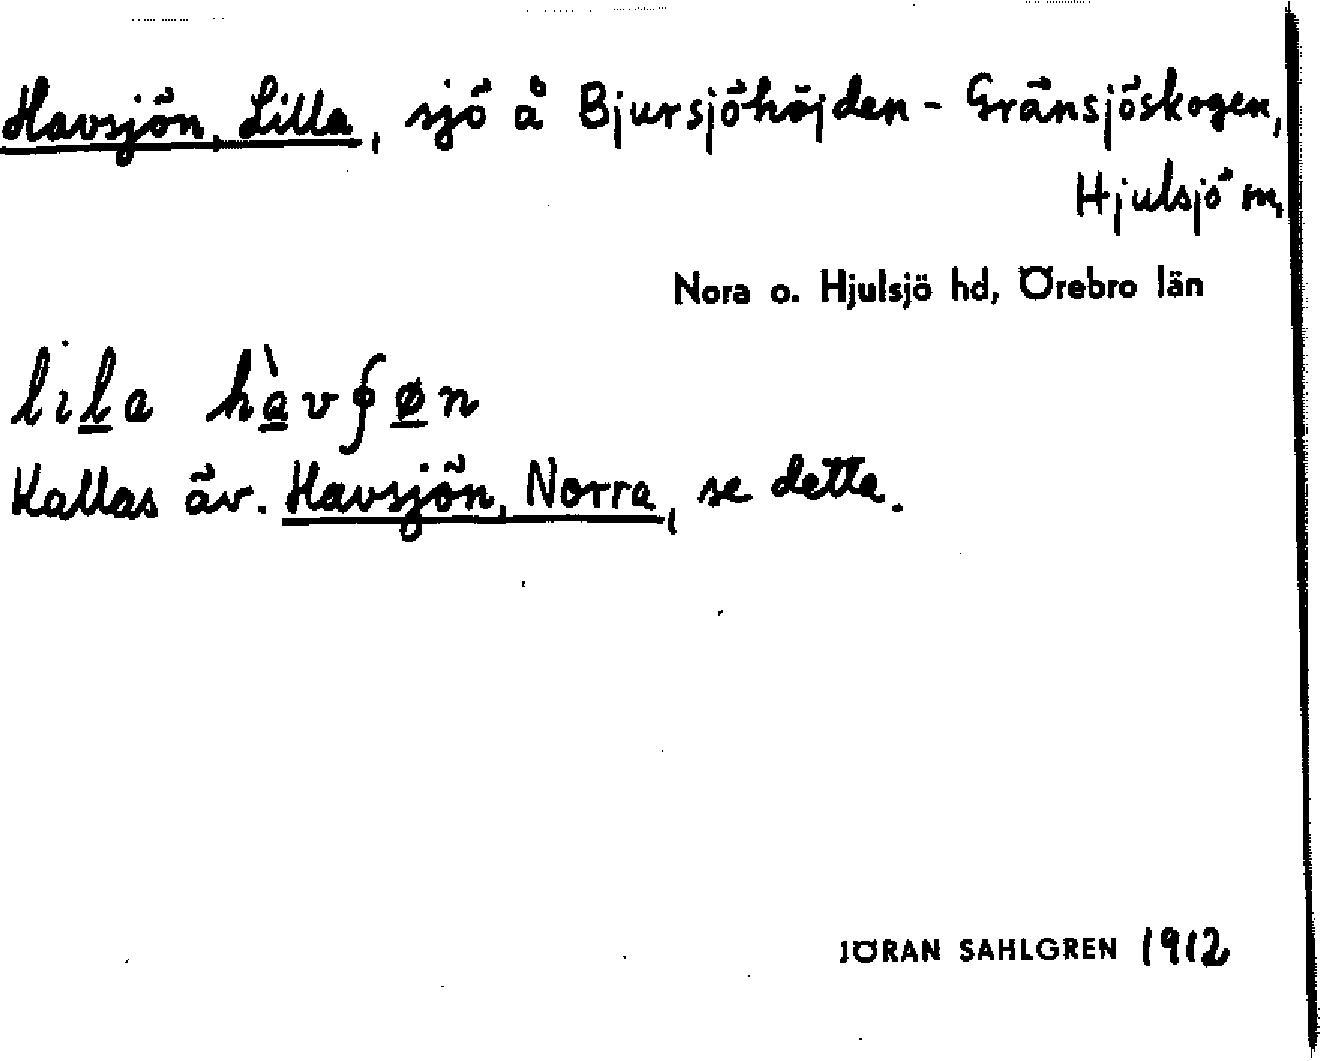 Havsjön, Lilla, sjö å Bjursjöhöjden - Gränsjöskogen,
Hjulsjö sn,
Nora o. Hjulsjö hd, Örebro län
lila hàvʃøn
Kallas äv. Havsjön, Norra, se detta.
JÖRAN SAHLGREN 1912